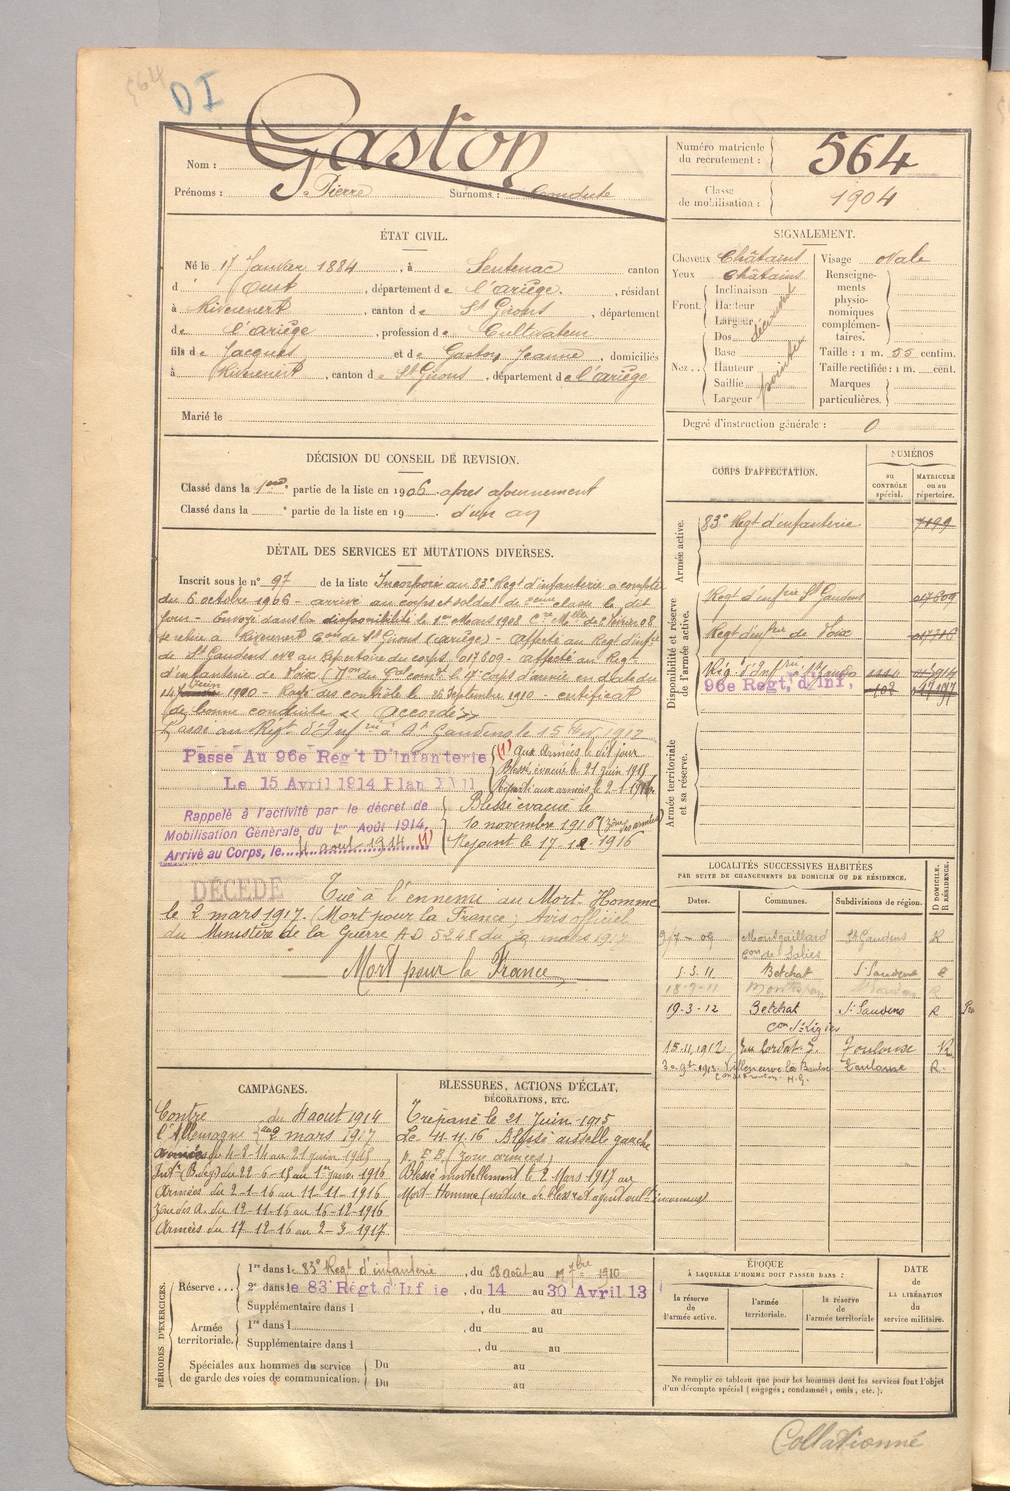 564 DI
Nom : Gaston
Prénoms : Pierre Surnoms :
Numéro matricule du recrutement : 564
Classe de mobilisation : 1904
ÉTAT CIVIL.
Né le 17 Janvier 1884, à Sentenac canton
d'Oust, département de l'Ariège, résidant
à Rivèrenert, canton de St Girons, département
de l'Ariège, profession de Cultivateur
fils de Jacques et de Gaston Jeanne, domiciliés
à Rivèrenert, canton de St Girons, département de l'Ariège
Marié le
SIGNALEMENT.
Cheveux Châtains
Yeux Châtains
Front. Inclinaison
Hauteur
Largeur
Nez. Dos
Base
Hauteur
Saillie
Largeur
Visage ovale
Renseignements physionomiques complémentaires.
Taille : 1 m. 55 centim.
Taille rectifiée : 1 m. cent.
Marques particulières.
Degré d'instruction générale : 0
DÉCISION DU CONSEIL DE REVISION.
Classé dans la 1ère partie de la liste en 1906 après ajournement
Classé dans la e partie de la liste en 19 d'un an
DÉTAIL DES SERVICES ET MUTATIONS DIVERSES.
Inscrit sous le n° 97 de la liste Incorporé au 83e Regt d'infanterie à compter
du 6 octobre 1906 - arrivé au corps et soldat de 2eme classe le dit
jour - Envoyé dans la disponibilité le 1er Mars 1908
se retire à Rivèrenert Con de St Girons (Ariège) - affecté au Regt d'infie
de St Gaudens n° au Répertoire du corps 017609 - affecté au Regt
d'infanterie de Foix
14 Juin 1910 - Rayé des contrôles le 26 Septembre 1910 - certificat
de bonne conduite « accordé »
Passé au Regt d'Infrie à St Gaudens le 15 1912
Passé Au 96e Reg't D'Infanterie
Le 15 Avril 1914 Plan XVII
Rappelé à l'activité par le décret de
Mobilisation Générale du 1er Août 1914,
Arrivé au Corps, le 4 août 1914 (1)
(1) aux Armées le dit jour
Blessé évacué le 21 juin 1915
Reparti aux armées le 2-1-1916
Blessé évacué le
10 novembre 1916 (zone des armées)
Rejoint le 17-12-1916
DÉCÉDÉ Tué à l'ennemi au Mort-Homme
le 2 mars 1917. (Mort pour la France) Avis officiel
du Ministère de la Guerre AD 5248 du 30 mars 1917
Mort pour la France
CORPS D'AFFECTATION.
NUMÉROS
au CONTRÔLE spécial.
MATRICULE ou au répertoire.
Armée active.
83e Regt d'infanterie 7199
Disponibilité et réserve de l'armée active.
Regt d'infrie St Gaudens 017609
Regt d'infrie de Foix
Rég. d'Infrie St Gaudens
96e Regt, d'Inf,
Armée territoriale et sa réserve.
LOCALITÉS SUCCESSIVES HABITÉES
PAR SUITE DE CHANGEMENTS DE DOMICILE OU DE RÉSIDENCE.
Dates. Communes. Subdivisions de région. D DOMICILE. R RÉSIDENCE.
Montgaillard St Gaudens R
con de Salies
5.3.11 Betchat St Gaudens
18-9-11 R
19-3-12 Betchat St Gaudens R
con St Lizier
15.11.1912 Toulouse R
Toulouse R.
CAMPAGNES.
Contre du 4 août 1914
l'Allemagne au 2 mars 1917
Armées du 4-8-14 au 21 juin 1915
Intr (B. leg.) du 22-6-15 au 1er janv 1916
Armées du 2-1-16 au 11-11-1916
Zone des A. du 12-11-16 au 16-12-1916
Armées du 17-12-16 au 2-3-1917
BLESSURES, ACTIONS D'ÉCLAT,
DÉCORATIONS, ETC.
Trépané le 21 Juin 1915
Le 11-11-16 Blessé aisselle gauche
p. E. B. (zone armées)
Blessé mortellement le 2 Mars 1917 au
Mort-Homme (nature de blessre et agent vulnt inconnus)
PÉRIODES D'EXERCICES.
Réserve
1re dans le 83e Regt d'infanterie, du 28 août au 7bre 1910
2e dans le 83e Régt d'Inf ie, du 14 au 30 Avril 13
Supplémentaire dans l , du au
Armée territoriale.
1re dans l , du au
Supplémentaire dans l , du au
Spéciales aux hommes du service de garde des voies de communication.
Du au
Du au
ÉPOQUE
À LAQUELLE L'HOMME DOIT PASSER DANS :
la réserve de l'armée active.
l'armée territoriale.
la réserve de l'armée territoriale
DATE de LA LIBÉRATION du service militaire.
Ne remplir ce tableau que pour les hommes dont les services font l'objet
d'un décompte spécial (engagés, condamnés, omis, etc.).
Collationné